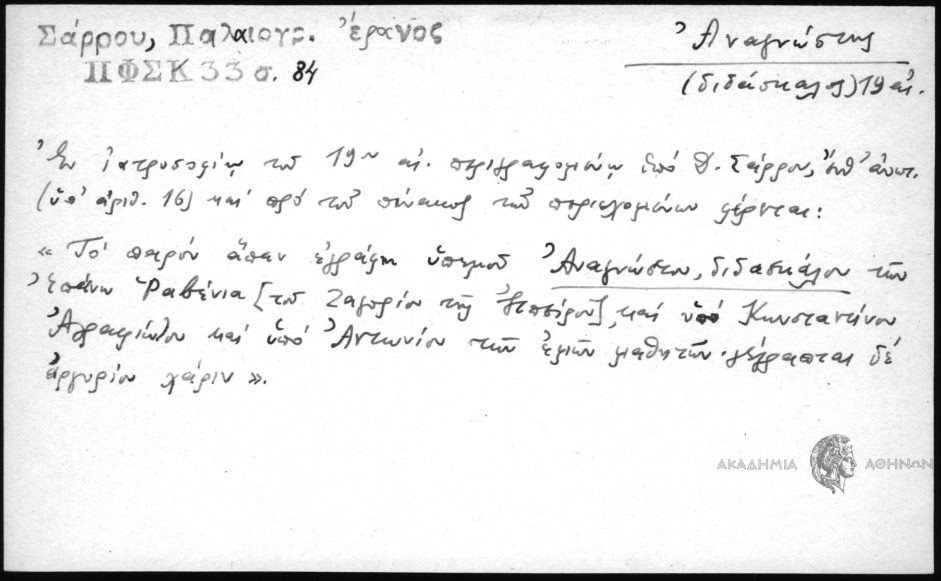 Σάρρου, Παλαιογρ. Ἔρανος
ΠΦΣΚ 33 σ. 84
Ἀναγνώστης
(διδάσκαλος) 19 αἰ.
Ἐν ἰατροσοφίῳ τοῦ 19ου αἰ. περιγραφομένῳ ὑπό Δ. Σάρρου, ἔνθ' ἀνωτ.
(ὑπ' ἀριθ. 16) καί πρό τοῦ πίνακος τῶν περιεχομένων φέρεται:
« Τό παρόν ἅπαν ἐγράφη ὑπ' ἐμοῦ Ἀναγνώστου, διδασκάλου τῶν
Ἐπάνω Ῥαβένια [τοῦ Ζαγορίου τῆς Ἠπείρου], καί ὑπό Κωνσταντίνου
καί ὑπό Ἀντωνίου τῶν ἐμῶν μαθητῶν· γέγραπται δέ
ἀργυρίου χάριν ».
ΑΚΑΔΗΜΙΑ ΑΘΗΝΩΝ